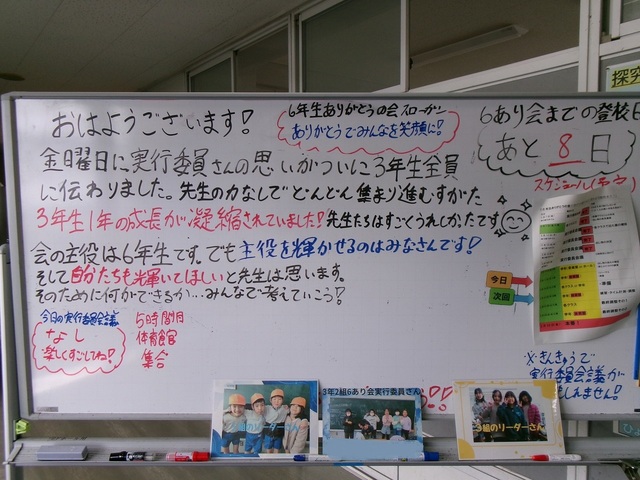 おはようございます!
6年生ありがとうの会スローガン
ありがとうでみんなを笑顔に!
6あり会までの登校日
あと8日
金曜日に実行委員さんの思いがついに3年生全員
に伝わりました。先生の力なしでどんどん集まり進むすがた
3年生1年の成長が凝縮されていました!先生たちはすごくうれしかったです
会の主役は6年生です。でも主役を輝かせるのはみなさんです!
そして自分たちも輝いてほしいと先生は思います。
そのために何ができるか…みんなで考えていこう!
今日の実行委員会議
なし
楽しくすごしてね!
5時間目
体育館
集合
スケジュール(予定)
今日
次回
※きんきゅうで
実行委員会議が
もしれません!
探究
3年2組6あり会実行委員さん
組のリーダーさん
3組のリーダーさん